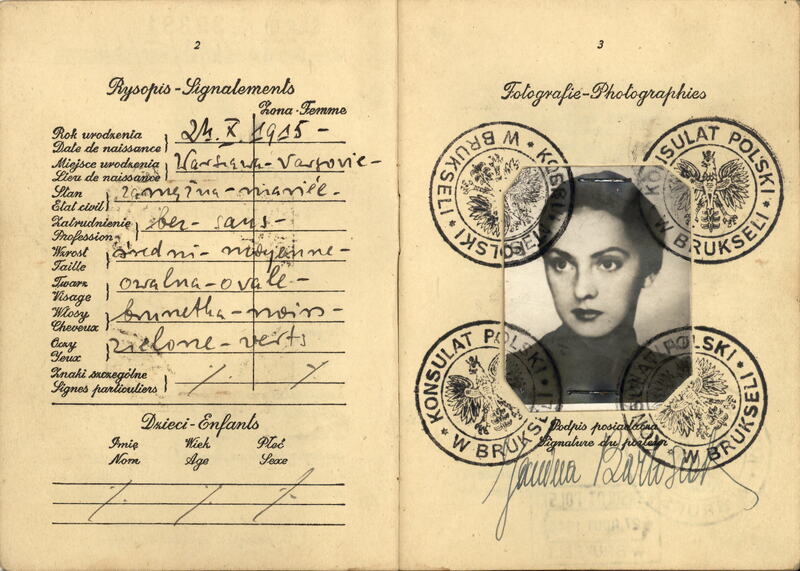 2
Rysopis - Signalements
Żona - Femme
Rok urodzenia
Date de naissance
24. X. 1915 -
Miejsce urodzenia
Lieu de naissance
Warszawa - Varsovie -
Stan
Etat civil
zamężna - mariée -
Zatrudnienie
Profession
bez - sans -
Wzrost
Taille
średni - moyenne -
Twarz
Visage
owalna - ovale -
Włosy
Cheveux
brunetka - noirs -
Oczy
Yeux
zielone - verts
Znaki szczególne
Signes particuliers
Dzieci - Enfants
Imię Wiek Płeć
Nom Age Sexe
3
Fotografie - Photographies
KONSULAT POLSKI W BRUKSELI
KONSULAT POLSKI W BRUKSELI
KONSULAT POLSKI W BRUKSELI
KONSULAT POLSKI W BRUKSELI
Podpis posiadacza
Signature du porteur
Janina